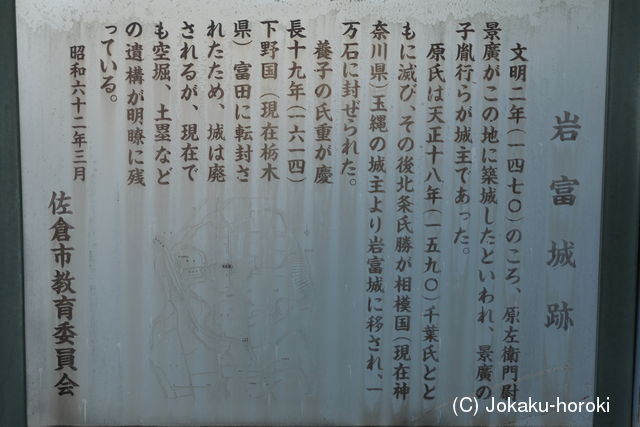 岩富城跡
文明二年(一四七〇)のころ、原左衛門尉
景廣がこの地に築城したといわれ、景廣の
子胤行らが城主であった。
原氏は天正十八年(一五九〇)千葉氏とと
もに滅び、その後北条氏勝が相模国(現在神
奈川県)玉縄の城主より岩富城に移され、一
万石に封ぜられた。
養子の氏重が慶
長十九年(一六一四)
下野国(現在栃木
県)富田に転封さ
れたため、城は廃
されるが、現在で
も空堀、土塁など
の遺構が明瞭に残
っている。
昭和六十二年三月
佐倉市教育委員会
(C) Jokaku-horoki